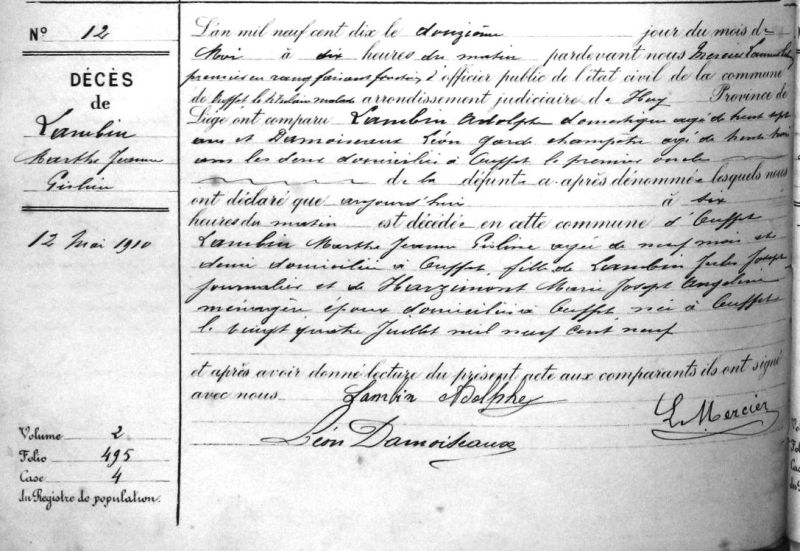 N° 12
DÉCÈS
de
Lambin
Marthe Jeanne
Gisline
12 Mai 1910
Volume 2
Folio 495
Case 4
du Registre de population.
L'an mil neuf cent dix le douzième jour du mois de
Mai à dix heures du matin pardevant nous Mercier
premier en rang faisant fonctions d'officier public de l'état civil de la commune
de Ouffet le titulaire malade arrondissement judiciaire de Huy Province de
Liège ont comparu Lambin Adolphe domestique agé de trente sept
ans et Damoiseaux Léon garde champêtre agé de trente trois
ans les deux domiciliés à Ouffet le premier oncle
de la défunte ci-après dénommée lesquels nous
ont déclaré que aujourd'hui à six
heures du matin est décédée en cette commune d'Ouffet
Lambin Marthe Jeanne Gisline agée de neuf mois et
demi domiciliée à Ouffet, fille de Lambin Jules Joseph
journalier et de Harzimont Marie Joseph Angeline
ménagère époux domiciliés à Ouffet née à Ouffet
le vingt quatre Juillet mil neuf cent neuf
et après avoir donné lecture du présent acte aux comparants ils ont signé
avec nous Lambin Adolphe
L. Mercier
Léon Damoiseaux